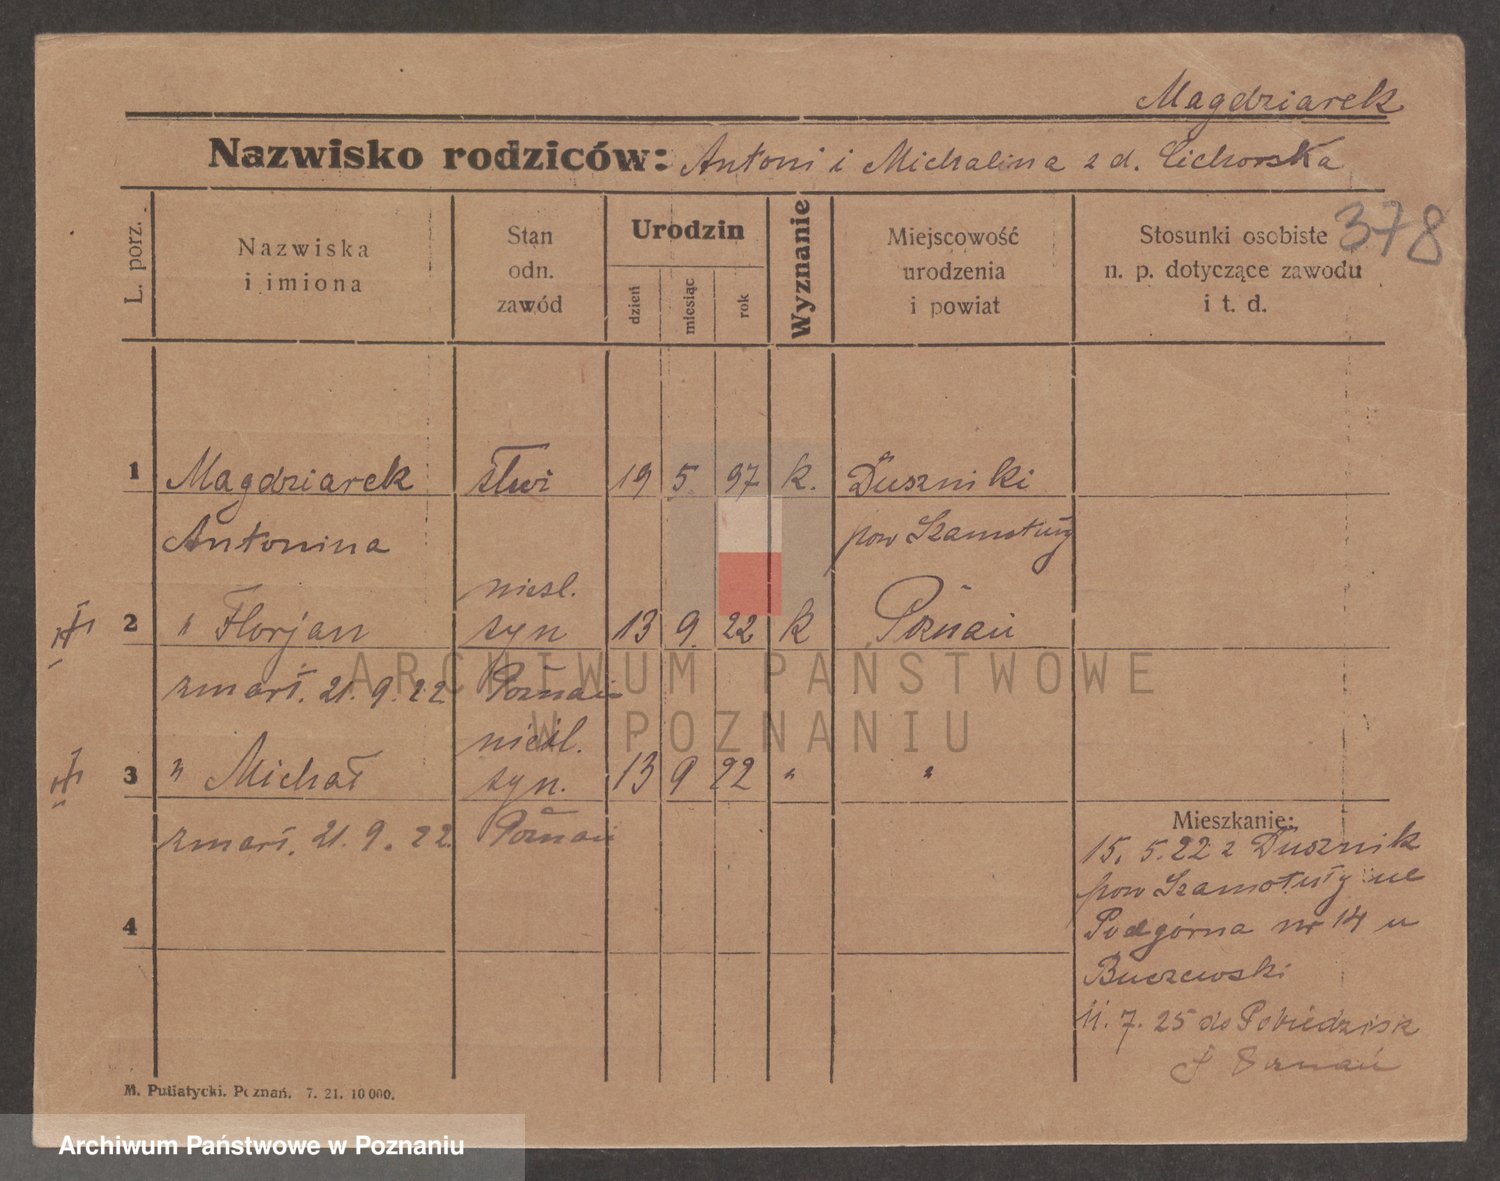 Magdziarek
Nazwisko rodziców: Antoni i Michalina z d. Cichorska
378
L. porz.
Nazwiska
i imiona
Stan
odn.
zawód
Urodzin
dzień
miesiąc
rok
Wyznanie
Miejscowość
urodzenia
i powiat
Stosunki osobiste
n. p. dotyczące zawodu
i t. d.
1 Magdziarek 19 5. 97 k. Duszniki
Antonina pow Szamotuły
niesl.
2 " Florjan syn 13 9. 22 k Poznań
zmarł. 21.9.22 Poznań
niesl.
3 " Michał syn. 13 9 22 " "
zmarł. 21.9.22. Poznań
4
Mieszkanie:
15.5.22 z Dusznik
pow Szamotuły ul
Podgórna nr 14 u
Buczewski
11.7.25 do Pobiedzisk
Poznań
M. Putiatycki. Poznań. 7. 21. 10 000.
ARCHIWUM PAŃSTWOWE
W POZNANIU
Archiwum Państwowe w Poznaniu